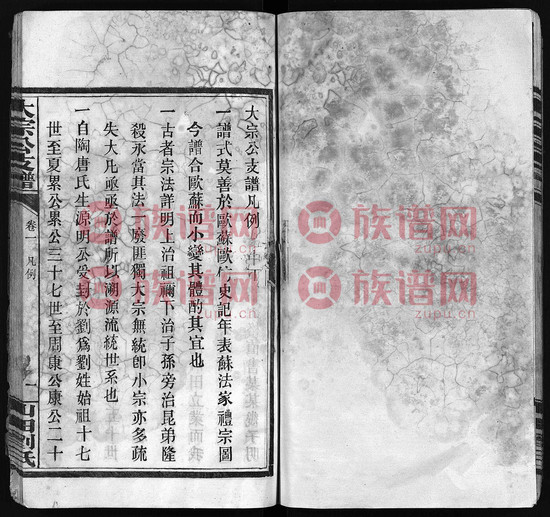 大宗公支譜凡例
一譜式莫善於歐蘇歐仿史記年表蘇法家禮宗圖
今譜合歐蘇而小變其體酌其宜也
一古者宗法詳明上治祖禰下治子孫旁治昆弟隆
殺永當其法一廢匪獨大宗無統卽小宗亦多疏
失大凡亟亟於譜所以溯源流統世系也
一自陶唐氏生源明公受封於劉爲劉姓始祖十七
世至夏累公累公三十七世至周康公康公二十
大宗公支譜
卷一 凡例
一
山田劉氏
族谱网
zupu.cn
族谱网
zupu.cn
族谱网
zupu.cn
族谱网
zupu.cn